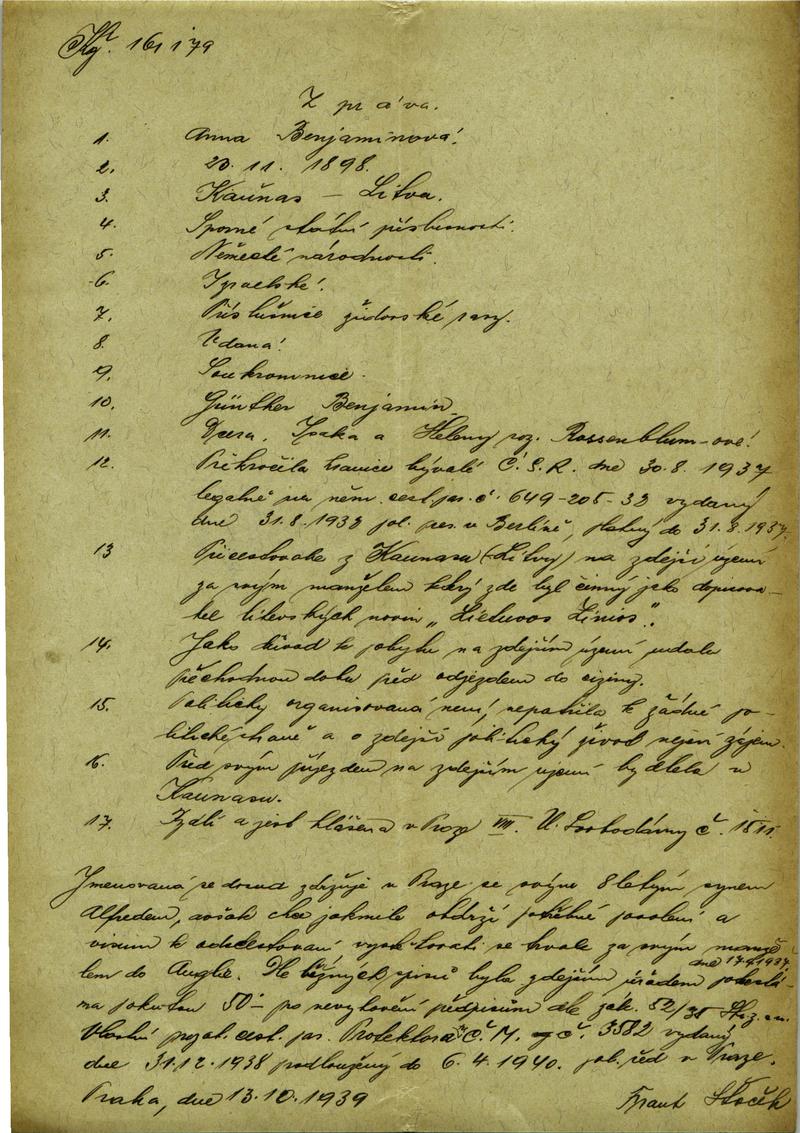 161179
Zpráva.
1. Anna Benjaminová.
2. 20.11. 1898.
3. Kaunas – Litva.
4. Sporné státní příslušnosti.
5. Německé národnosti.
6. Israelské.
7. Příslušnice židovské rasy.
8. Vdaná.
9. Soukromnice.
10. Günther Benjamin.
11. Dcera, Isaka a Heleny roz. Rossenblum-ové.
12. Překročila hranice bývalé Č.S.R. dne 30.8. 1937
legálně na něm. cest. pas. č. 649-205-38 vydaný
dne 31.8.1938 pol. pres. v Berlíně, platný do 31.8.1937.
13 Přicestovala z Kaunasu (Litvy) na zdejší území
za svým manželem který zde byl činný jako dopisova-
tel litevských novin „Lietuvos Žinios".
14. Jako důvod k pobytu na zdejším území udala
přechodnou dobu před odjezdem do ciziny.
15. Politicky organisovaná není, nepatřila k žádné po-
litické straně a o zdejší politický život nejeví zájem.
16. Před svým příjezdem na zdejším území bydlela v
Kaunasu.
17. Bydlí a jest hlášena v Praze VIII. U Svobodárny č. 1511.
Jmenovaná se dosud zdržuje v Praze se svým 8letým synem
Alfredem, avšak chce jakmile obdrží potřebné povolení a
visum k odcestování vystěhovati se trvale za svým manže-
lem do Anglie. Dle běžných spisů byla zdejším úřadem dne 17.9.1937 potrestá-
na pokutou 50– pro nevyhovění předpisům dle zák. 52/35 Sb.z. a n.
Vlastní pas Č. M. č. 3582 vydaný
dne 31.12.1938 prodloužený do 6.4.1940. pol. řed. v Praze.
Praha, dne 13.10.1939
Frant